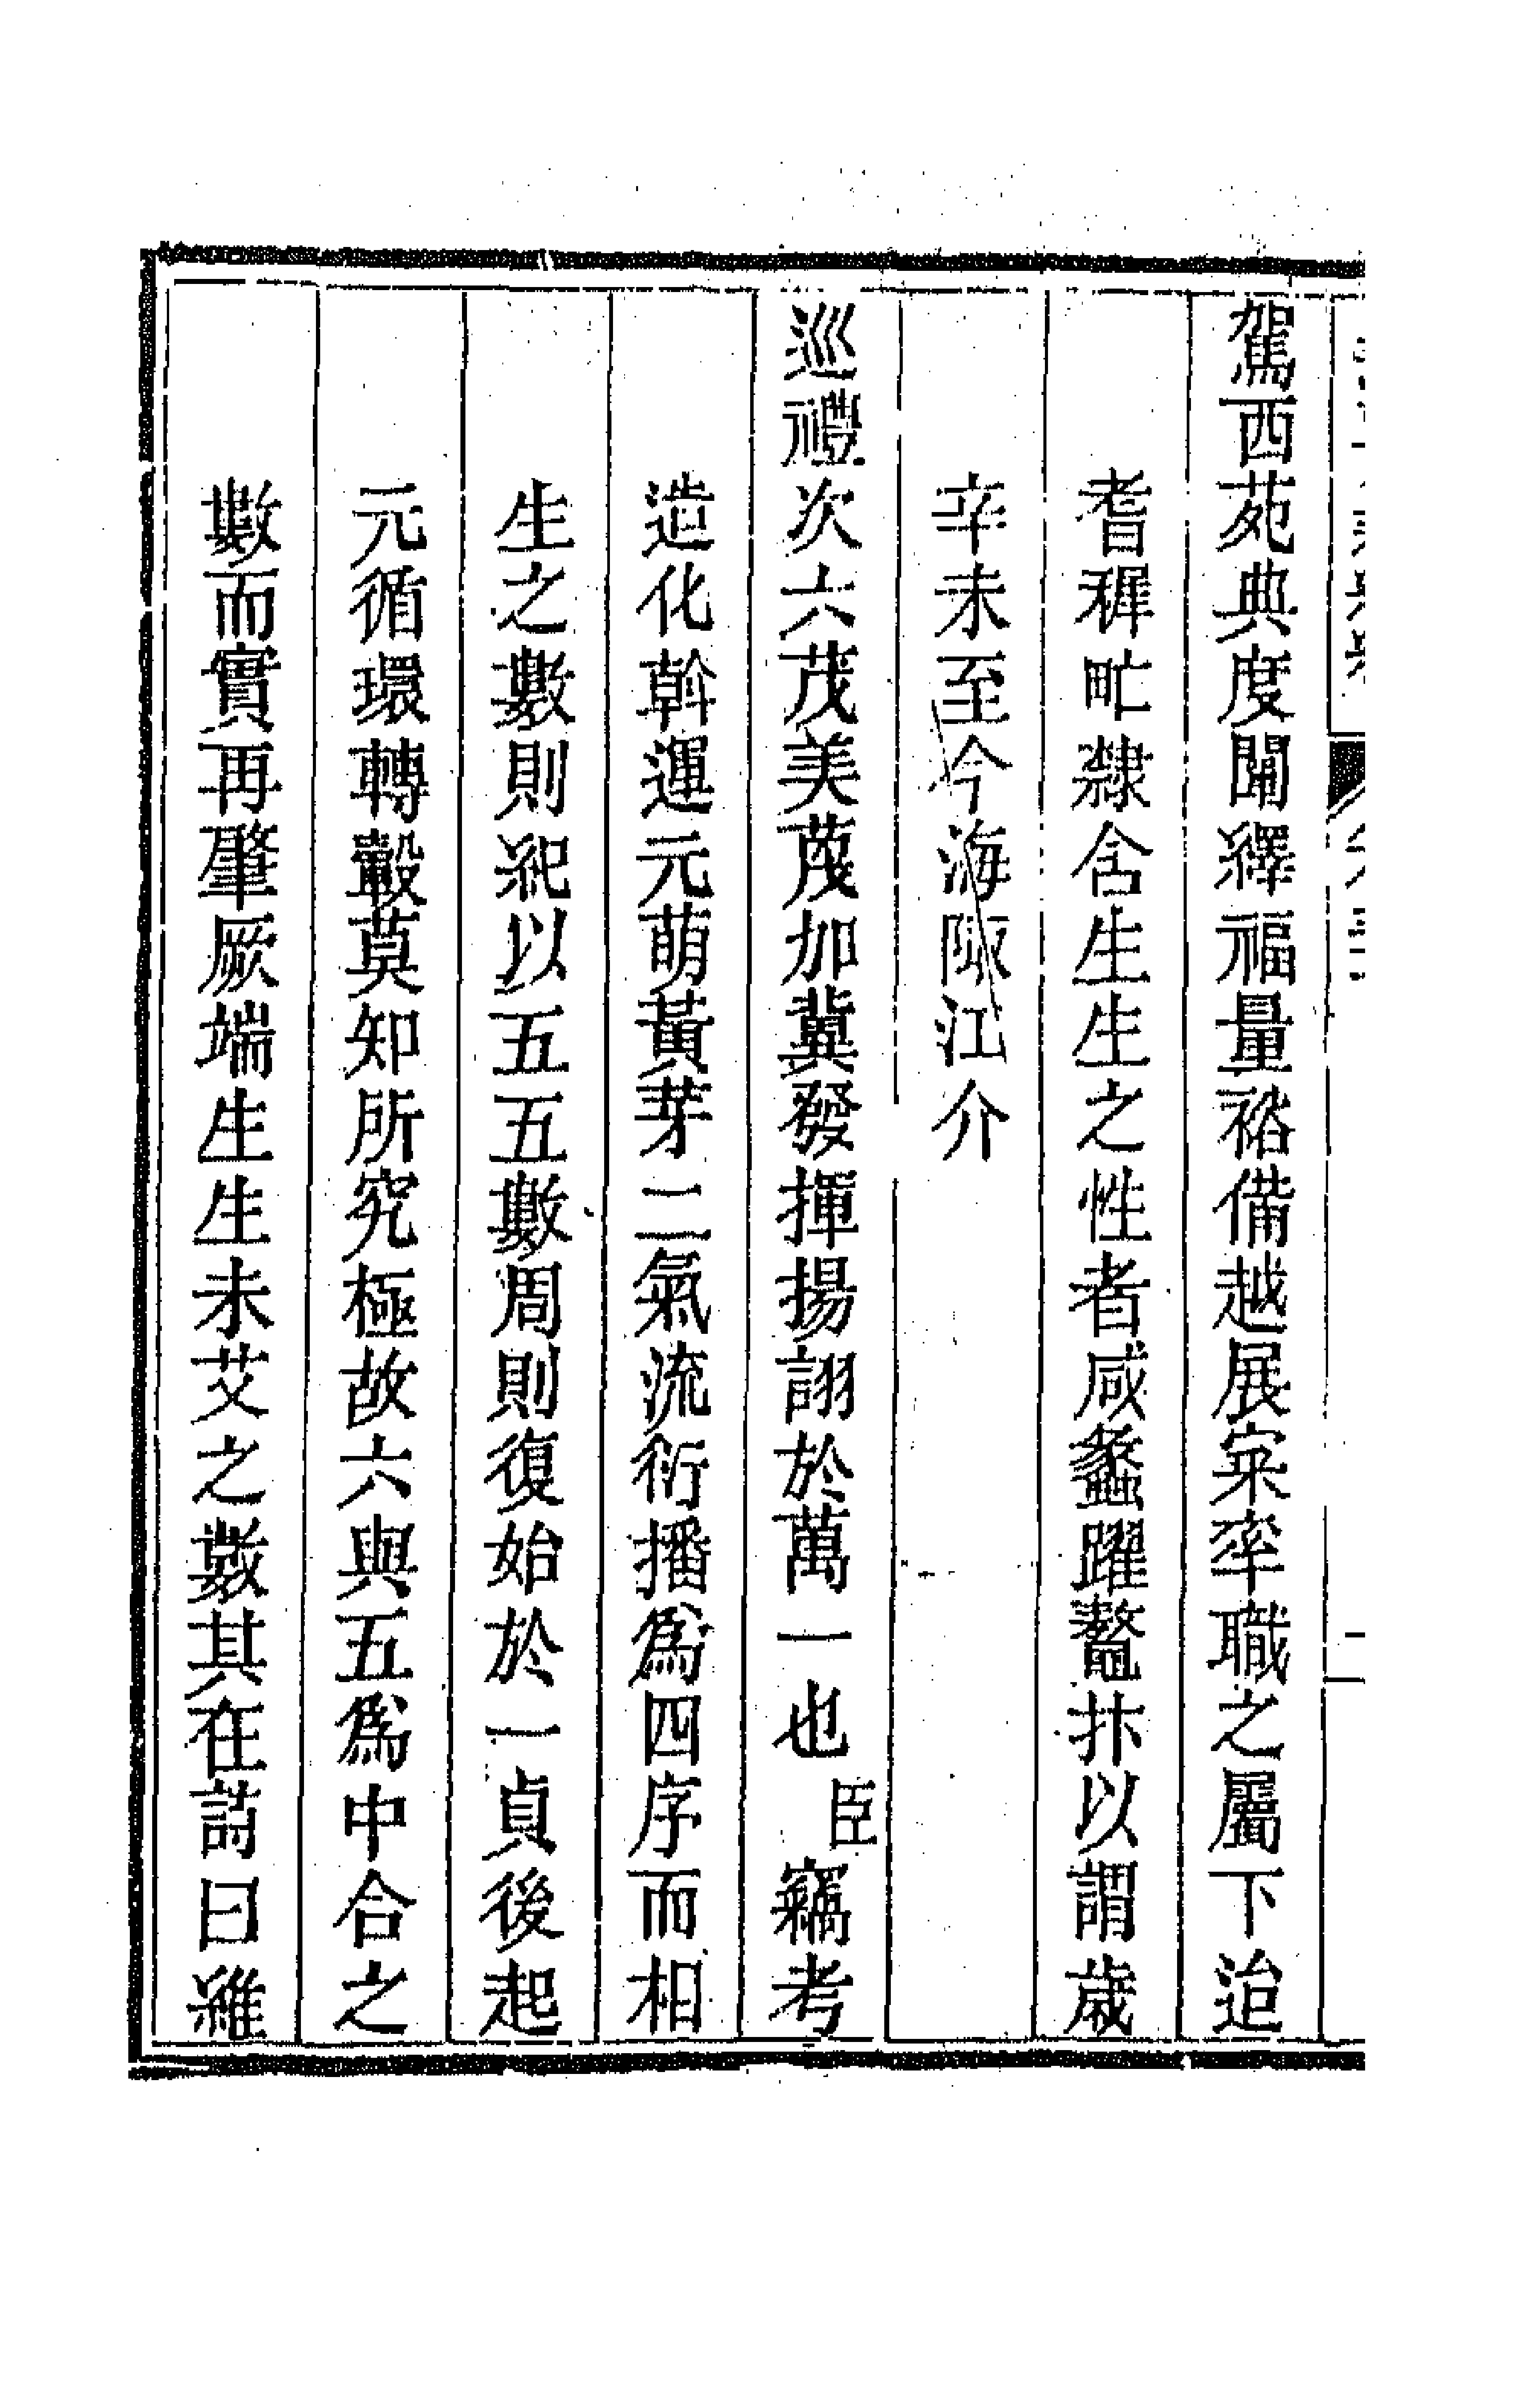 駕西苑典度闓繹福量裕備越展寀率職之屬下迨
耆穉甿隸含生生之性者咸蠡躍鼇抃以謂歲
辛未至今海陬江介
巡禮次六茂美薎加冀發揮揚詡於萬一也臣竊考
造化斡運元萌黃芽二氣流衍播爲四序而相
生之數則紀以五五數周則復始於一貞後起
元循環轉轂莫知所究極故六與五爲中合之
數而實再肇厥端生生未艾之數其在詩曰維